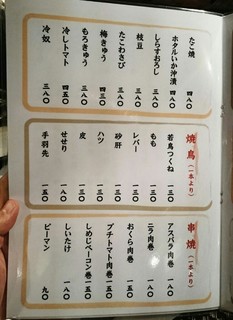 たこ焼 四八〇
ホタルいか沖漬 四八〇
しらすおろし 三八〇
枝豆 三八〇
たこわさび 三八〇
梅きゅう 四三〇
もろきゅう 三八〇
冷しトマト 四五〇
冷奴 三八〇
焼鳥（一本より）
若鳥つくね 一三〇
もも 一五〇
レバー 一五〇
砂肝 一五〇
ハツ 一五〇
皮 一五〇
せせり 一八〇
手羽先 一五〇
串焼（一本より）
アスパラ肉巻 一八〇
ニラ肉巻 一八〇
おくら肉巻 一五〇
プチトマト肉巻 一五〇
しめじベーコン巻 一五〇
しいたけ 一八〇
ピーマン 九〇